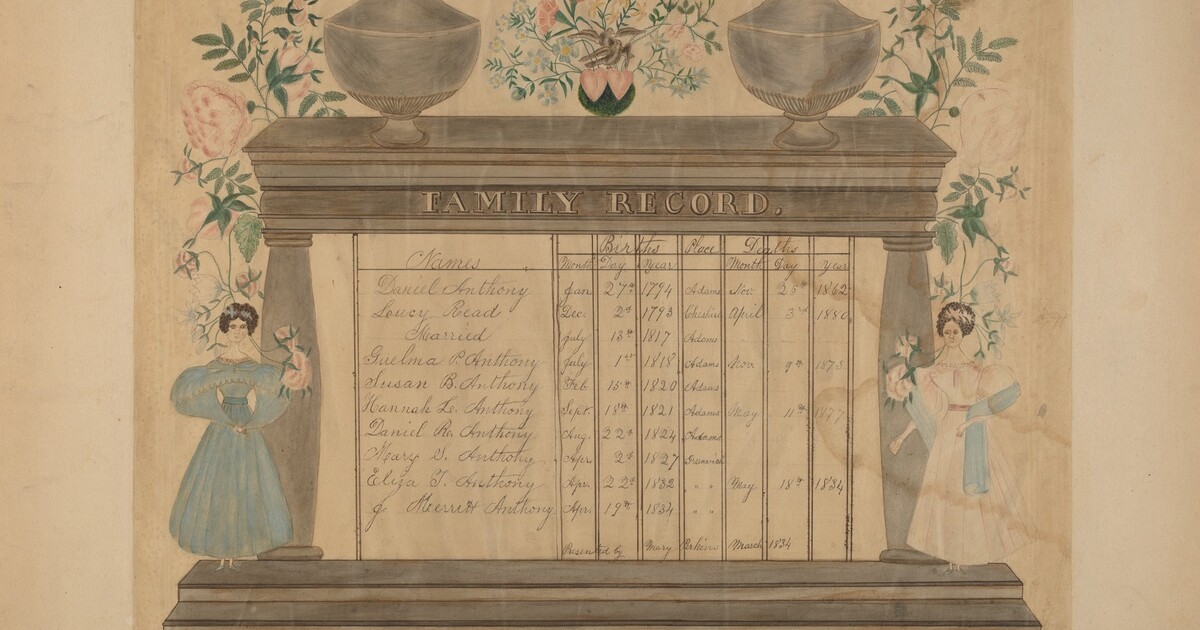 FAMILY RECORD.
Births Place Deaths
Names Month Day Year Month Day Year
Daniel Anthony Jan 27th 1794 Adams Nov. 25th 1862
Loucy Read Dec. 2d 1793 Cheshire April 3rd 1880
Married july 13th 1817 Adams
Guelma P. Anthony july 1st 1818 Adams Nov. 9th 1873.
Susan B. Anthony Feb. 15th 1820 Adams
Hannah L. Anthony Sept. 18th 1821 Adams May 11th 1877
Daniel R. Anthony Aug. 22d 1824 Adams
Mary S. Anthony Apr. 2d 1827 Greenwich
Eliza T. Anthony Apr. 22d 1832 " " May 18th 1834
J. Merritt Anthony Apr. 19th 1834 " "
Presented by Mary Perkins March 1834